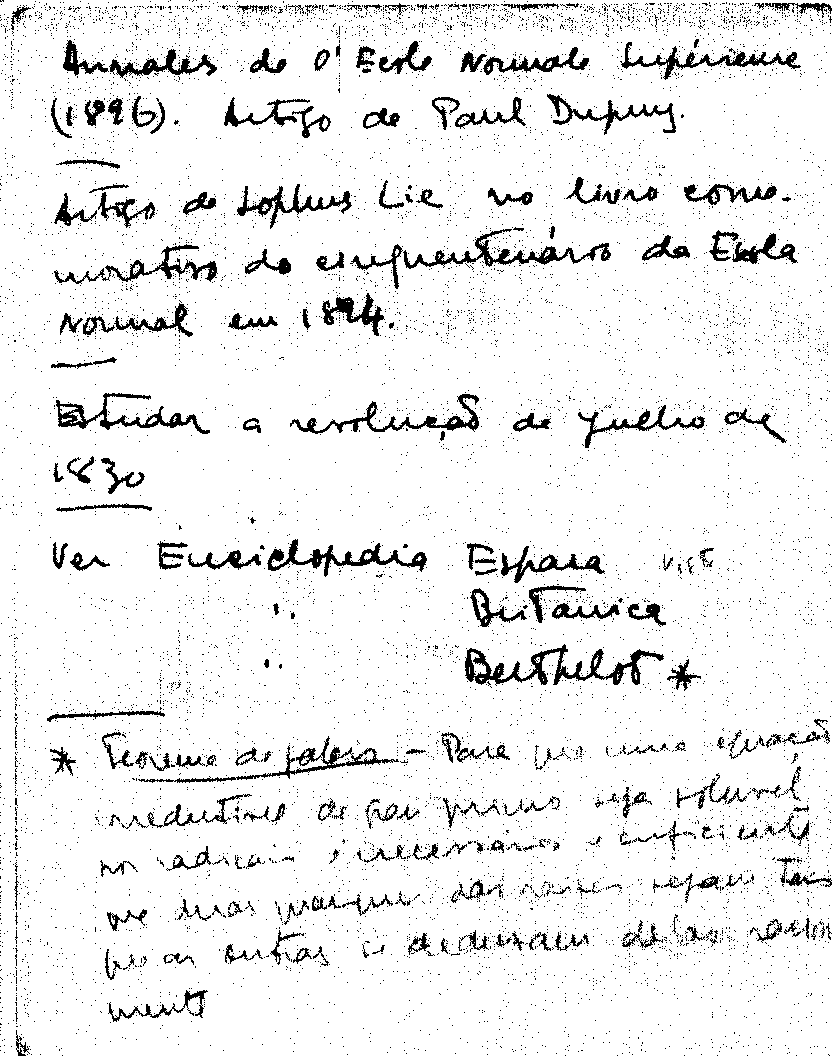 Annales de l'Ecole Normale Supérieure
(1896). Artigo de Paul Dupuy.
Artigo de Sophus Lie no livro come-
morativo do cinquentenário da Escola
Normal em 1894.
Estudar a revolução de Julho de
1830
Ver Enciclopedia Espasa
" Britanica
" Berthelot *
* Teorema de Galois - Para que uma equação
irreductivel de grau primo seja soluvel
por radicais é necessário e suficiente
que duas quaisquer das raizes sejam tais
que as outras se deduzam delas racional
mente